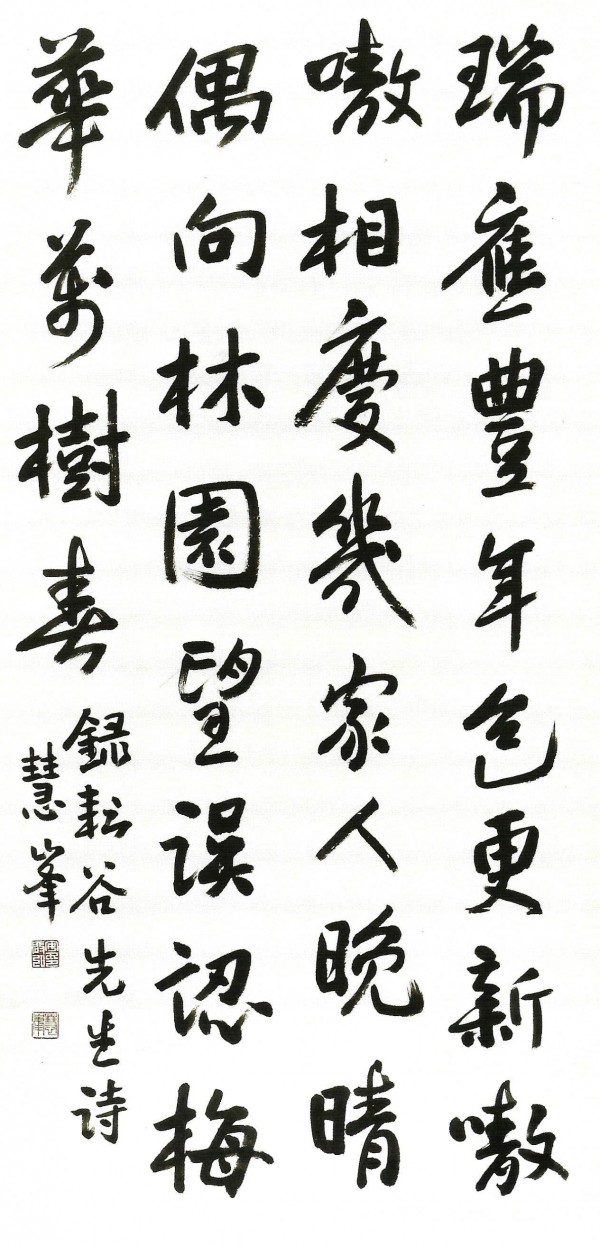 瑞應豐年色更新嗷
嗷相慶幾家人晚晴
偶向林園望誤認梅
華萬樹春
錄耘谷先生詩
慧峯